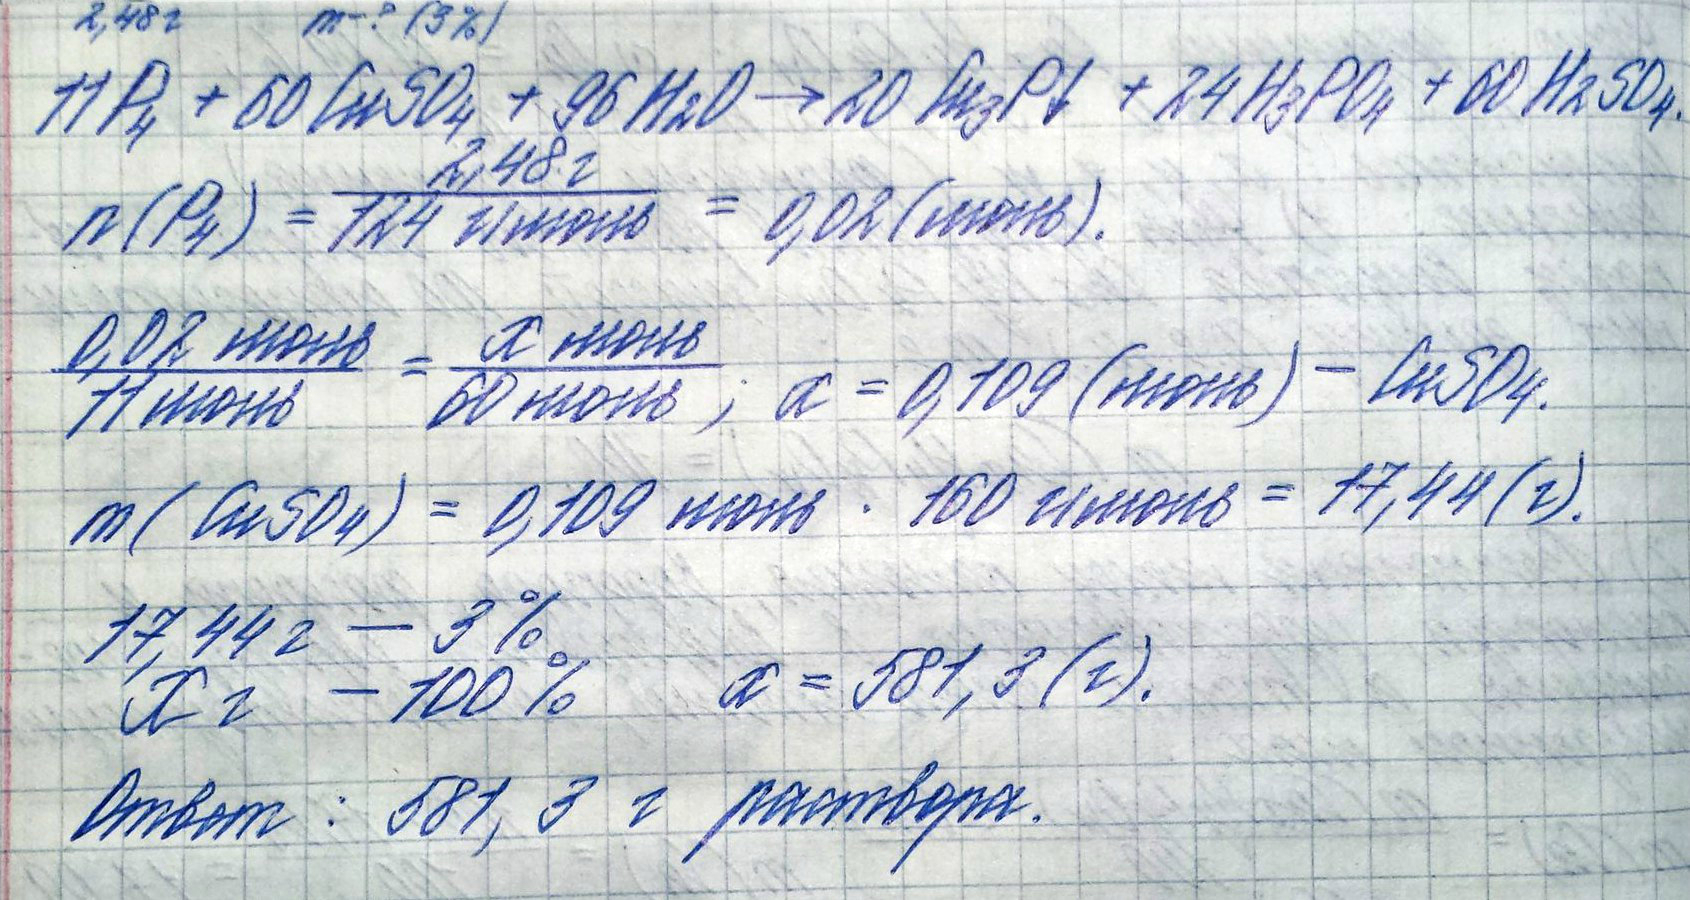 2,48 г m - ? (3%)
11P₄ + 60CuSO₄ + 96H₂O → 20Cu₃P↓ + 24H₃PO₄ + 60H₂SO₄.
n(P₄) = 2,48 г / 124 г/моль = 0,02 (моль).
0,02 моль / 11 моль = x моль / 60 моль ; x = 0,109 (моль) – CuSO₄.
m(CuSO₄) = 0,109 моль · 160 г/моль = 17,44 (г).
17,44 г – 3%
X г – 100% x = 581,3 (г).
Ответ: 581,3 г раствора.